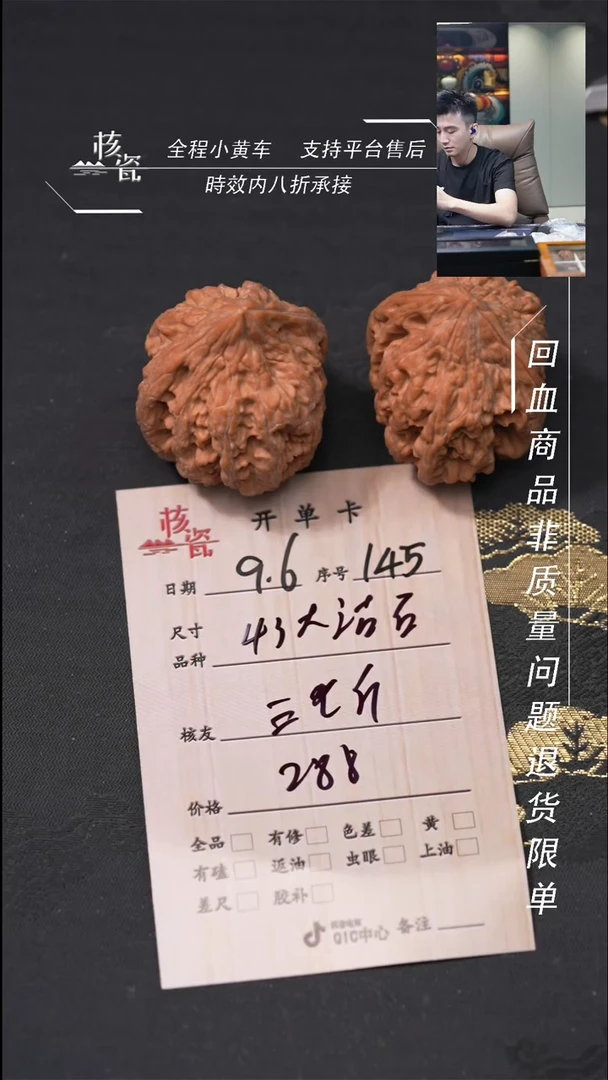 核瓷
全程小黄车 支持平台售后
時效内八折承接
回血商品非质量问题退货限单
核瓷
开单卡
日期 9.6 序号 145
尺寸
品种
43大活石
核友
价格 288
全品 有修 色差 黄
有磕 返油 虫眼 上油
差尺 胶补
QIC中心 备注